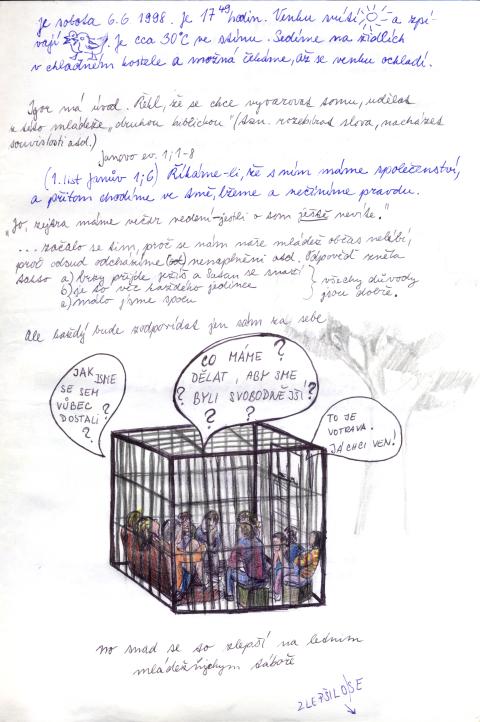 je sobota 6.6 1998. Je 17 49 hodin. Venku svítí a zpí-
vají. Je cca 30°C ve stínu. Sedíme na židlích
v chládném kostele a možná čekáme, až se venku ochladí.
Igor má úvod. Řekl, že se chce vyvarovat tomu, udělat
z této mládeže „druhou biblickou" (tzn. rozebírat slova, nacházet
souvislosti atd.)
Janovo ev. 1; 1-8
(1. list Janův 1; 6) Říkáme-li, že s ním máme společenství,
a přitom chodíme ve tmě, lžeme a nečiníme pravdu.
„Jo, zejtra máme večer vedení - jestli o tom ještě nevíte."
... začalo se tím, proč se nám naše mládež občas nelíbí,
proč odsud odcházíme nenaplněni atd. Odpověď zněla
takto a) brzy přijde Ježíš a Satan se snaží
b) je to věc každého jedince
c) málo jsme spolu
všechy důvody
jsou dobře.
Ale každý bude zodpovídat jen sám za sebe
JAK JSME
SE SEM
VŮBEC ?
DOSTALI ?
?
CO MÁME ?
DĚLAT, ABY SME
? BYLI SVOBODNĚJŠÍ ?
? ?
TO JE
VOTRAVA.
JÁ CHCI VEN!
no snad se to zlepší na letním
mládežnickym táboře
ZLEPŠILO SE